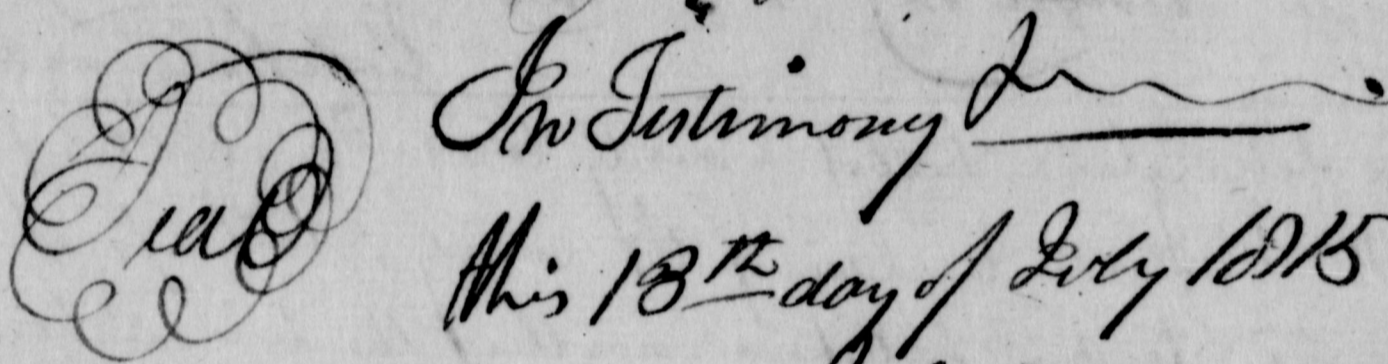 Seal
In Testimony
this 13th day of July 1815